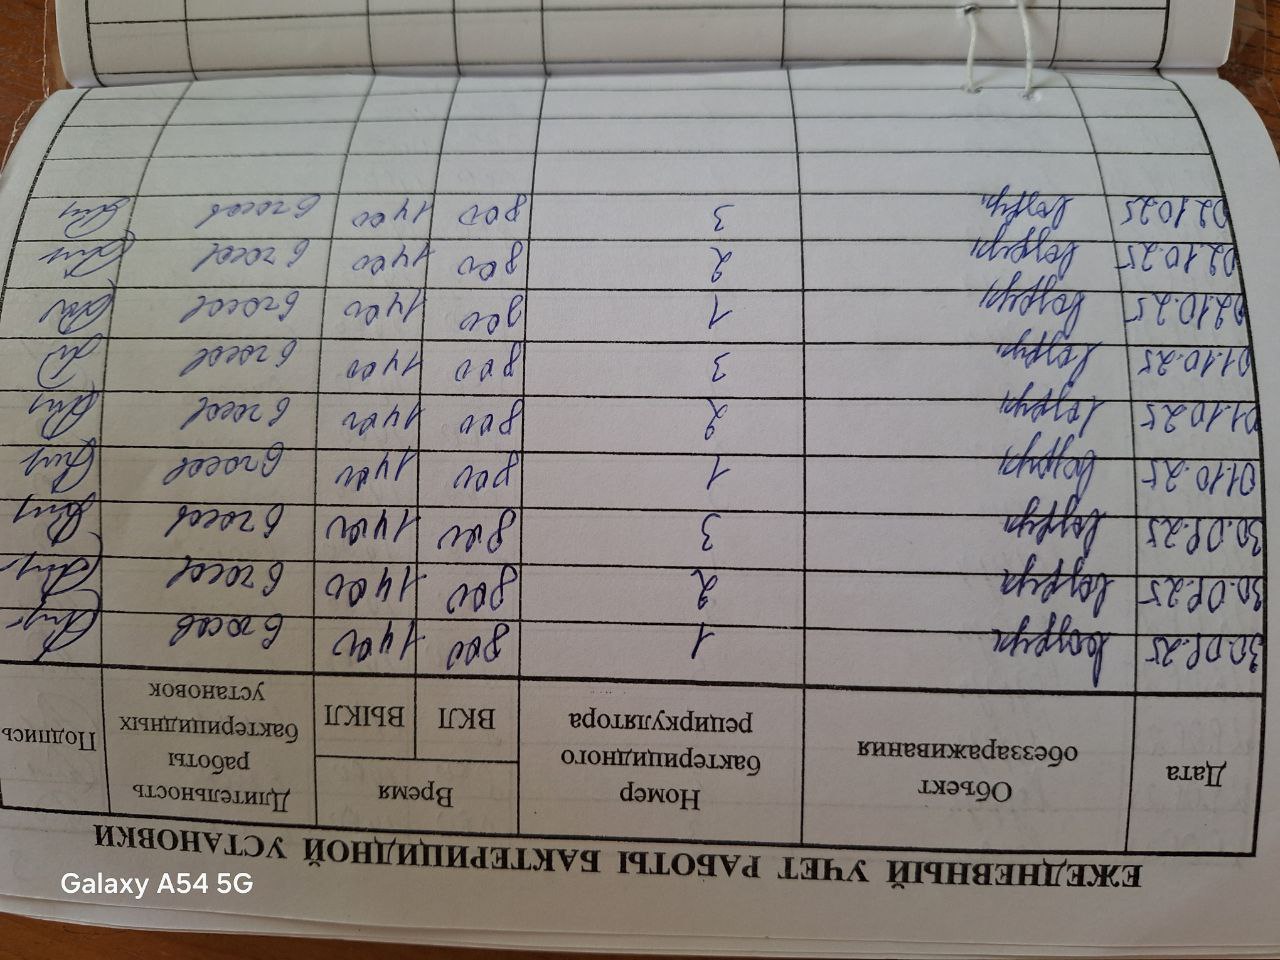 ЕЖЕДНЕВНЫЙ УЧЕТ РАБОТЫ БАКТЕРИЦИДНОЙ УСТАНОВКИ
Дата Объект обеззараживания Номер бактерицидного рециркулятора Время ВКЛ ВЫКЛ Длительность работы бактерицидных установок Подпись
30.09.25 1 800 1400 6 часов
30.09.25 2 800 1400 6 часов
30.09.25 3 800 1400 6 часов
01.10.25 1 800 1400 6 часов
01.10.25 2 800 1400 6 часов
01.10.25 3 800 1400 6 часов
02.10.25 1 800 1400 6 часов
02.10.25 2 800 1400 6 часов
02.10.25 3 800 1400 6 часов
Galaxy A54 5G